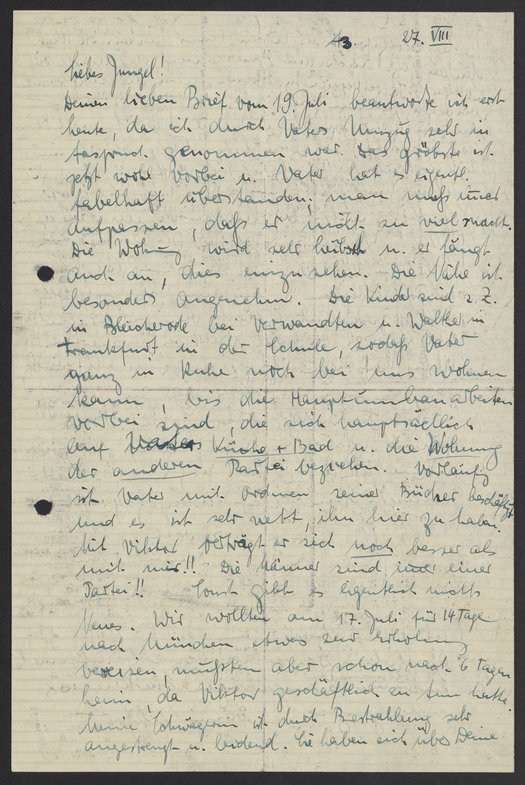 A3. 27. VIII
Liebes Jungel!
Deinen lieben Brief vom 19. Juli beantworte ich erst
heute, da ich durch Vaters Umzug sehr in
Anspruch genommen war. Das gröbste ist
jetzt wohl vorbei u. Vater hat es eigentl.
fabelhaft überstanden; man muß immer
aufpassen, daß er nicht zu viel macht.
Die Wohnung wird sehr hübsch u. er fängt
auch an, dies einzusehen. Die Nähe ist
besonders angenehm. Die Kinder sind z. Z.
in Bleicherode bei Verwandten u. Walther in
Frankfurt in der Schule, sodaß Vater
ganz in Ruhe noch bei uns wohnen
kann, bis die Hauptumbauarbeiten
vorbei sind, die sich hauptsächlich
auf Küche + Bad u. die Wohnung
der anderen Partei beziehen. Vorläufig
ist Vater mit ordnen seiner Bücher beschäftigt
und es ist sehr nett, ihn hier zu haben.
Mit Viktor verträgt er sich noch besser als
mit mir!! Die Männer sind immer einer
Partei!! Sonst gibt es eigentlich nichts
Neues. Wir wollten am 17. Juli für 14 Tage
nach München etwas zur Erholung
verreisen, mußten aber schon nach 6 Tagen
heim, da Viktor geschäftlich zu tun hatte.
Meine Schwägerin ist durch Bestrahlung sehr
angestrengt u. leidend. Sie haben sich über Deine